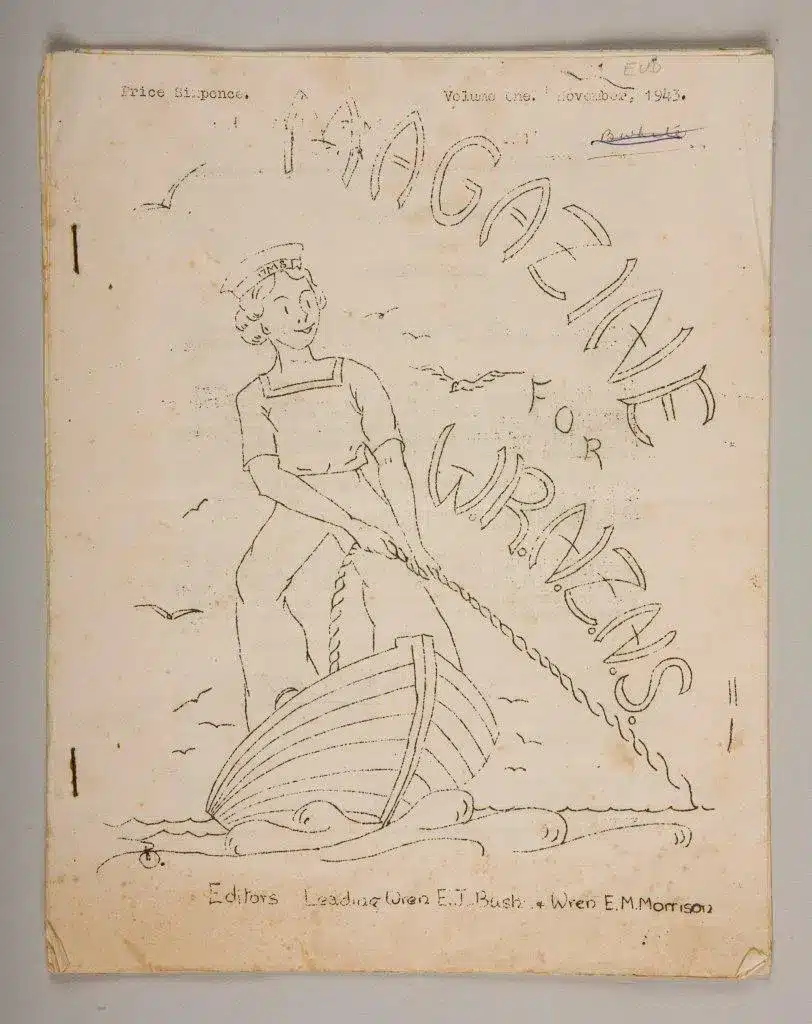 Price Sixpence.
Volume One. November, 1943.
MAGAZINE
FOR
W.R.N.Z.N.S.
HMS
Editors Leading Wren E.J. Bush & Wren E.M. Morrison